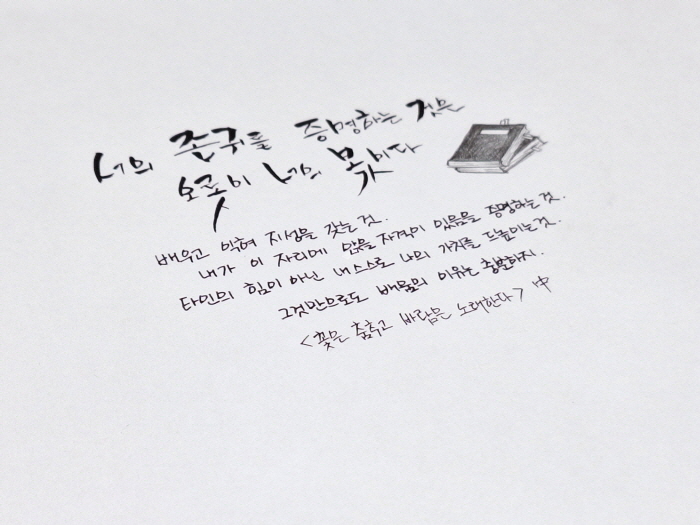 너의 존귀를 증명하는 것은
오롯이 너의 몫이다
배우고 익혀 지성을 갖는 것.
내가 이 자리에 앉을 자격이 있음을 증명하는 것.
타인의 힘이 아닌 내 스스로 나의 가치를 드높이는 것.
그것만으로도 배움의 이유는 충분하지.
<꽃은 춤추고 바람은 노래한다> 中